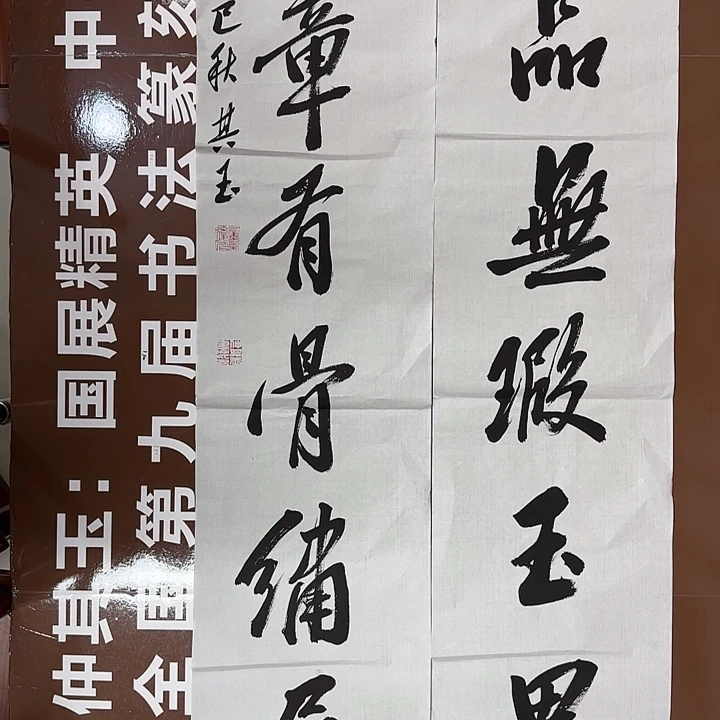 品無瑕玉
章有骨繡
巳秋其玉
仲其玉：国展精英 中
全国第九届书法篆刻